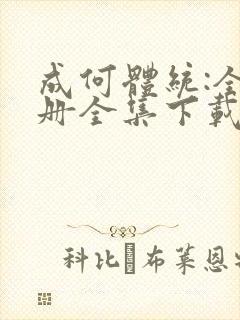 成何體統:全
册全集下載
科比·布萊恩